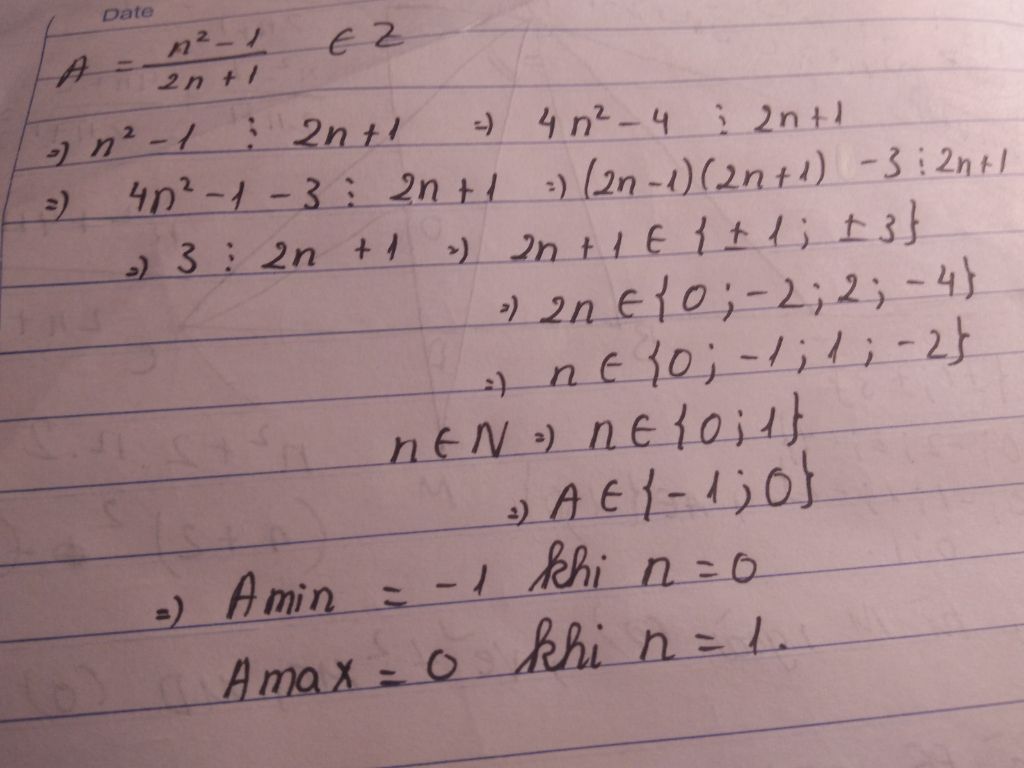 Date
A = \frac{n² - 1}{2n + 1} ∈ Z
=) n² - 1 ⋮ 2n+1 =) 4n² - 4 ⋮ 2n+1
=) 4n² - 1 - 3 ⋮ 2n + 1 =) (2n-1)(2n+1) - 3 ⋮ 2n+1
=) 3 ⋮ 2n + 1 =) 2n + 1 ∈ {± 1 ; ± 3}
=) 2n ∈ {0 ; -2 ; 2 ; -4}
=) n ∈ {0 ; -1 ; 1 ; -2}
n ∈ N =) n ∈ {0 ; 1}
=) A ∈ {-1 ; 0}
=) Amin = -1 khi n = 0
Amax = 0 khi n = 1.